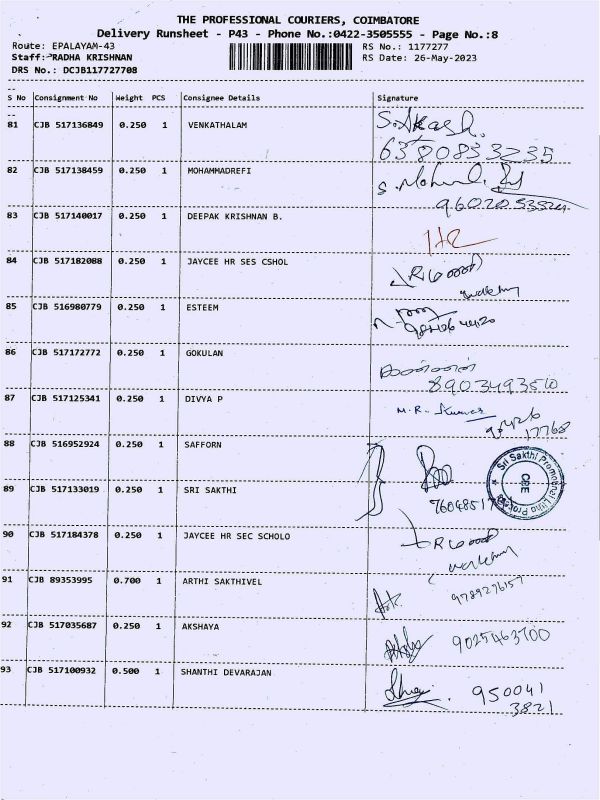 THE PROFESSIONAL COURIERS, COIMBATORE
Delivery Runsheet - P43 - Phone No.:0422-3505555 - Page No.:8
Route: EPALAYAM-43 RS No.: 1177277
Staff: RADHA KRISHNAN RS Date: 26-May-2023
DRS No.: DCJB117727708
S No Consignment No Weight PCS Consignee Details Signature
81 CJB 517136849 0.250 1 VENKATHALAM S.Akash.
6380833235
82 CJB 517138459 0.250 1 MOHAMMADREFI
83 CJB 517140017 0.250 1 DEEPAK KRISHNAN B.
84 CJB 517182088 0.250 1 JAYCEE HR SES CSHOL
85 CJB 516980779 0.250 1 ESTEEM
86 CJB 517172772 0.250 1 GOKULAN
8903493510
87 CJB 517125341 0.250 1 DIVYA P M.R. Kumar
17768
88 CJB 516952924 0.250 1 SAFFORN
Sri Sakthi Promotional Litho Process
CBE
89 CJB 517133019 0.250 1 SRI SAKTHI
90 CJB 517184378 0.250 1 JAYCEE HR SEC SCHOLO
91 CJB 89353995 0.700 1 ARTHI SAKTHIVEL 9789276157
92 CJB 517035687 0.250 1 AKSHAYA 9025463700
93 CJB 517100932 0.500 1 SHANTHI DEVARAJAN 950041
3821